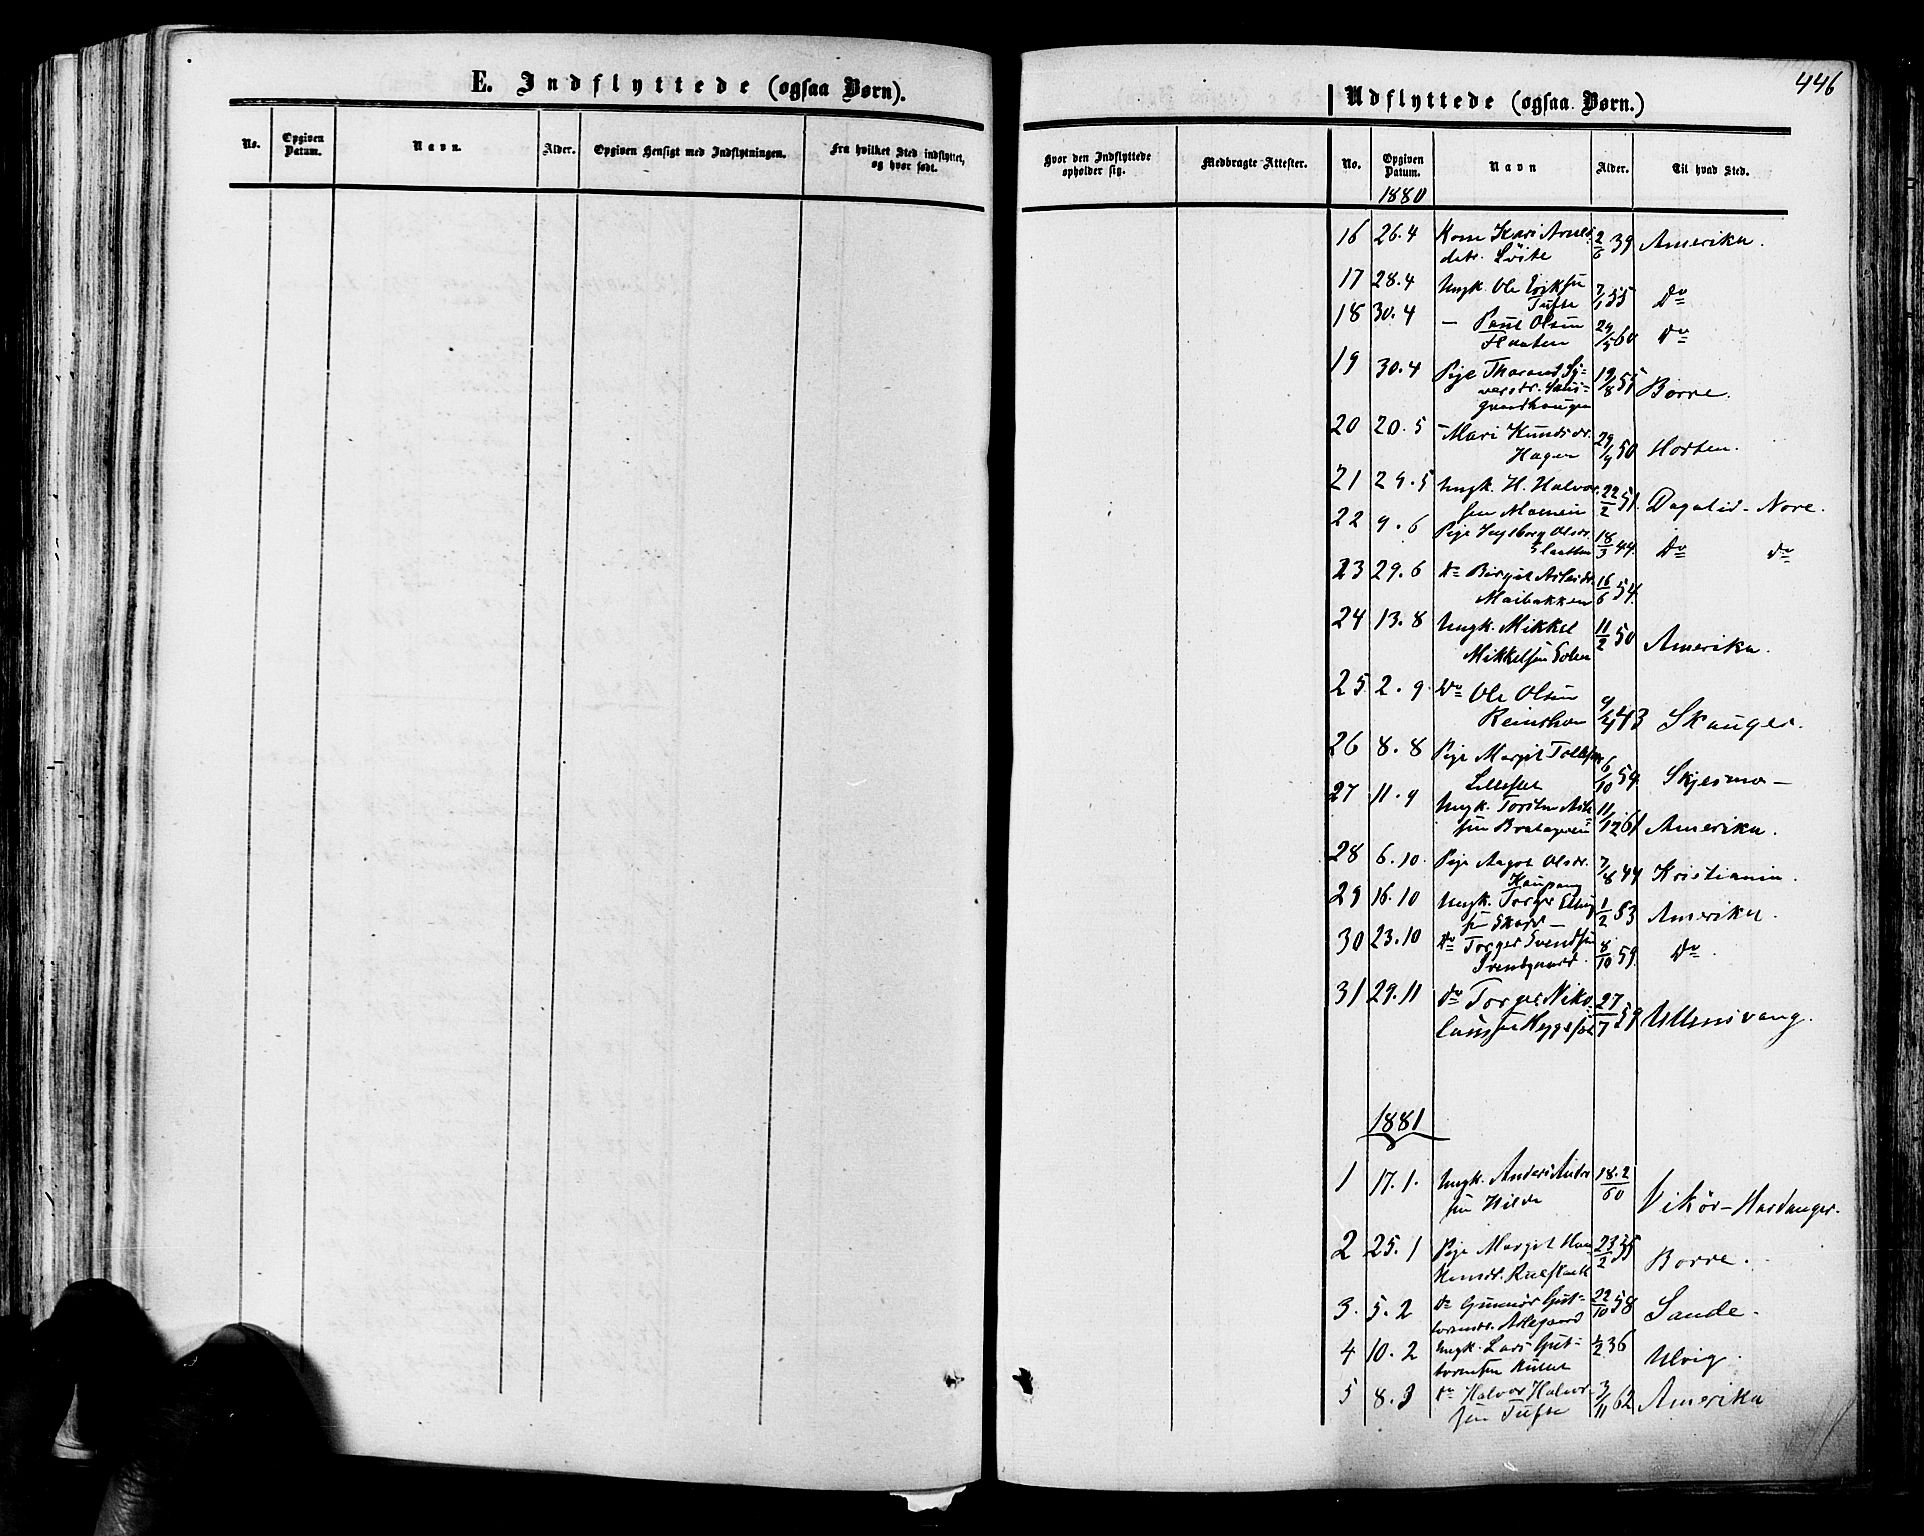 446
E. Indflyttede (ogsaa Børn).
No.
Opgiven Datum.
Navn.
Alder.
Opgiven Hensigt med Indflytningen.
Fra hvilket Sted indflyttet, og hvor født.
Udflyttede (ogsaa Børn.)
Hvor den Indflyttede opholder sig.
Medbragte Attester.
No.
Opgiven Datum.
Navn
Alder.
Til hvad Sted.
1880
16 26.4 Kone Kari Arnes- 2/6 39 Amerika.
datr.
17 28.4 Ungk. Ole Eriksen 7/1 55 Do
Tufte
18 30.4 — Paul Olsen 29/5 60 do
Flaaten
19 30.4 Pige Sy- 19/8 55 Borre.
versdr.
20 20.5 — Mari Knudsdr. 29/9 50 Horten.
Hagen
21 29.5 Ungk. H. Halvor- 22/2 51. Dagalid - Nore.
sen Moenen
22 9.6 Pige Ingeborg Olsdr. 18/3 44. Do do
23 29.6 do Birgit 16/6 54.
Maibakken
24 13.8 Ungk. Mikkel 11/2 50 Amerika.
Mikkelsen
25 2.9. Do Ole Olsen 9/4 43 Skauger.
26 8.8 Pige Margit 6/10 54. Skjesmo —
27 11.9 Ungk. Torsten 11/12 61 Amerika.
sen
28 6.10. Pige Aagot Olsdr. 7/8 44 Kristiania.
Kaupang
29 16.10 Ungk. Torger 1/2 53 Amerika.
sen Skard —
30 23.10 do Torger Svendsen 8/10 59 Do.
31 29.11 do Torger Niko- 27/7 59 Ullensvang.
laisen
1881
1 17.1. Ungk. Anders Andr 18.2/60 Vikør - Hardanger.
sen Hilde
2 25.1 Pige Margit 23/2 35 Borre.
3. 5.2 do Gunnor Gut- 22/10 58 Sande.
tormsdr.
4 10.2 Ungk. Lars Gut- 1/2 36 Ulvig.
tormsen
5 8.3 do Halvor Halvor- 3/11 62 Amerika
sen Tufte